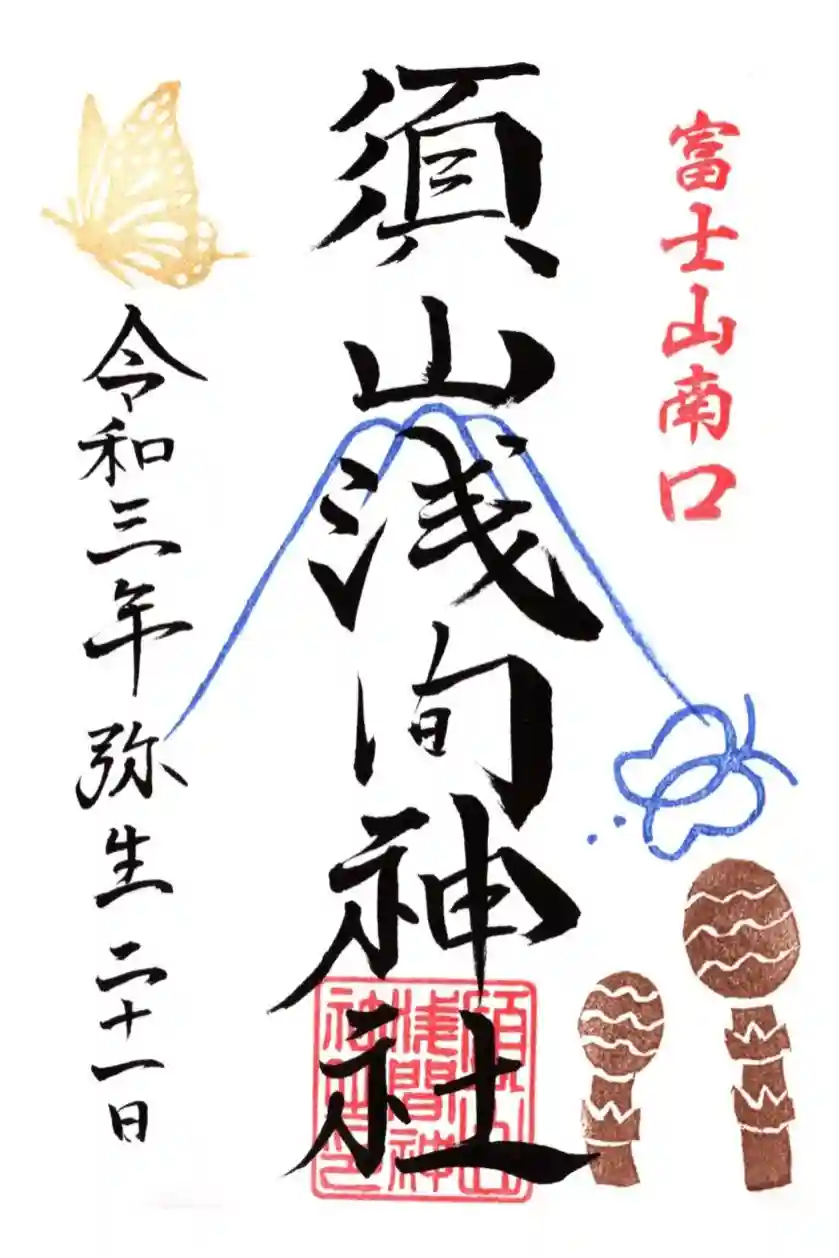 富士山南口
須山浅间神社
須山
浅間神
社之印
令和三年弥生二十一日